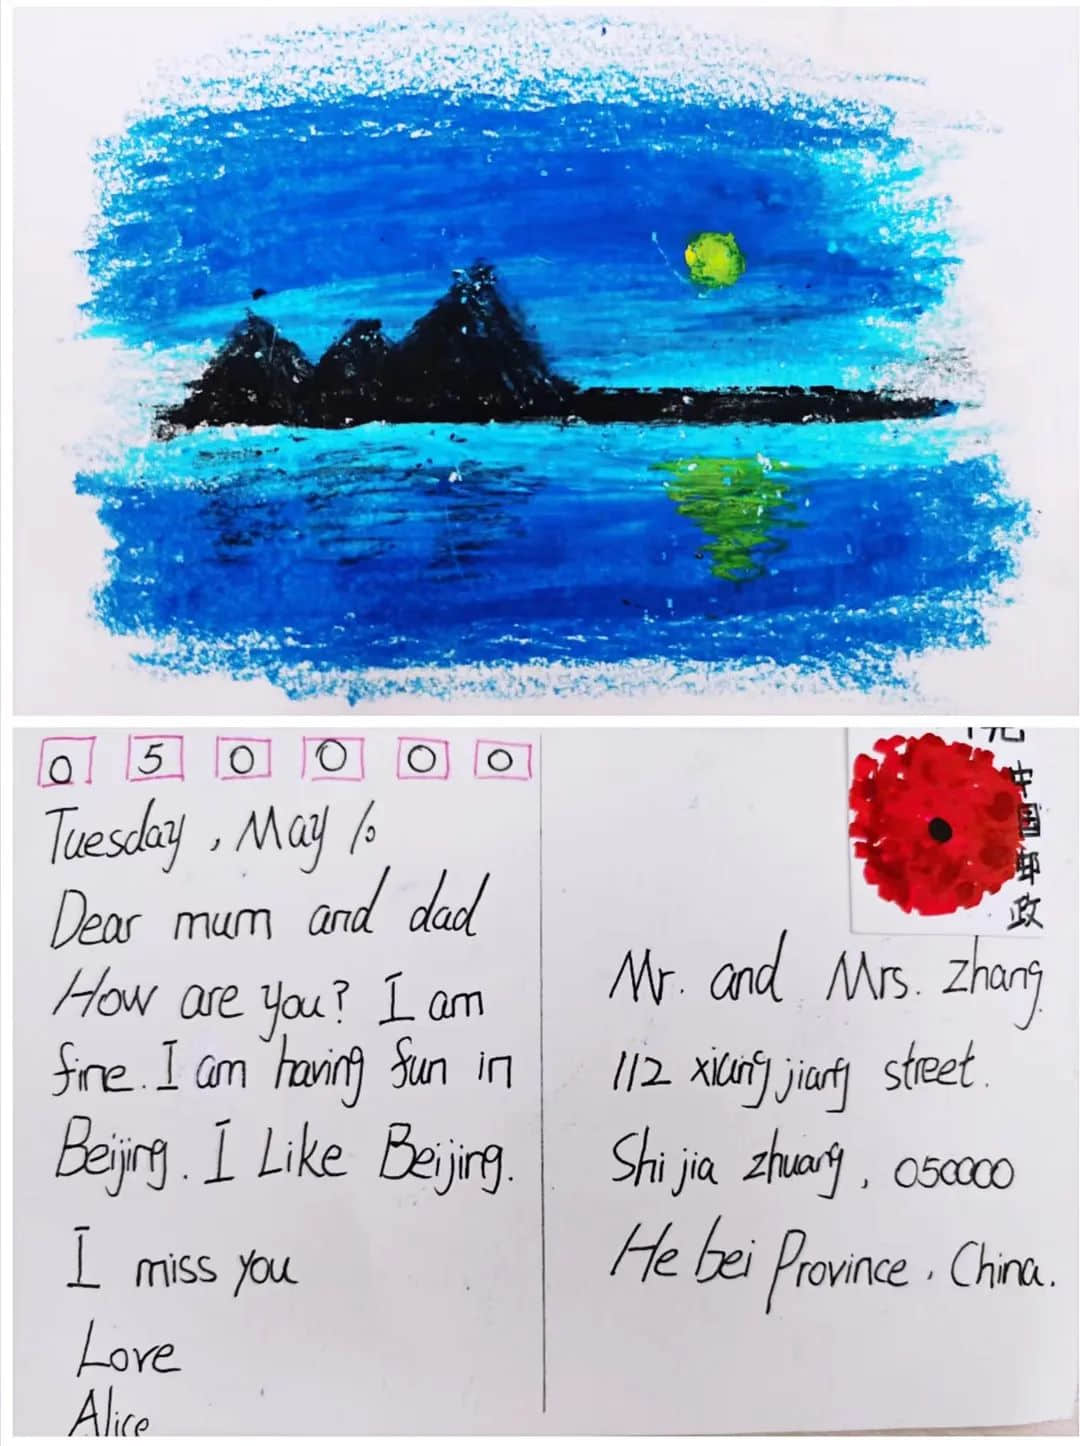 0 5 0 0 0 0
Tuesday, May 10
Dear mum and dad
How are you? I am
fine. I am having fun in
Beijing. I Like Beijing.
I miss you
Love
Alice
中国邮政
Mr. and Mrs. zhang.
112 xiang jiang street.
Shi jia zhuang, 050000
He bei Province, China.